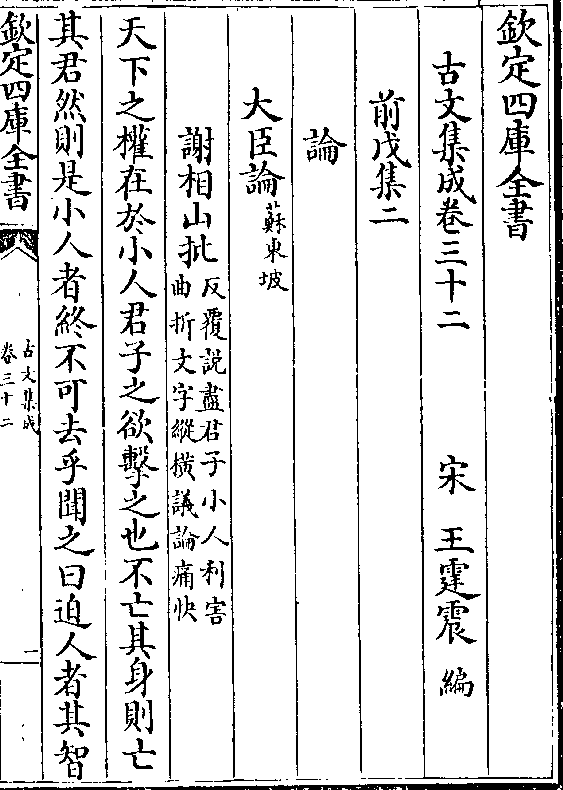 欽定四庫全書
古文集成卷三十二　宋　王霆震　編
前戊集二
論
大臣論 蘇東坡
謝相山批 反覆說盡君子小人利害
曲折文字縱橫議論痛快
天下之權在於小人君子之欲擊之也不亡其身則亡
其君然則是小人者終不可去乎聞之曰迫人者其智
欽定四庫全書
古文集成
卷三十二
一